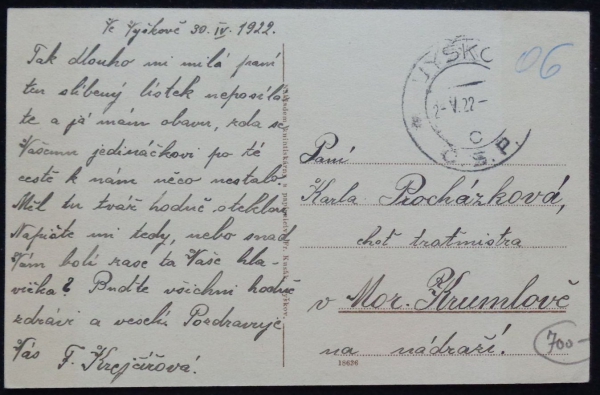 Ve Vyškově 30. IV. 1922.
Tak dlouho mi milá paní
ten slíbený lístek neposílá-
te a já mám obavu, zda se
Vašemu jedináčkovi po té
cestě k nám něco nestalo.
Měl tu tvář hodně oteklou
Napište mi tedy, nebo snad
Vám bolí zase ta Vaše hla-
vička? Buďte všichni hodně
zdrávi a veselí. Pozdravuje
Vás F. Krejčířová.
VYŠKO
2-V.22-
C
Č.S.P.
06
Paní
Karla Procházková,
choť traťmistra
v Mor. Krumlově
na nádraží.
700-
18636